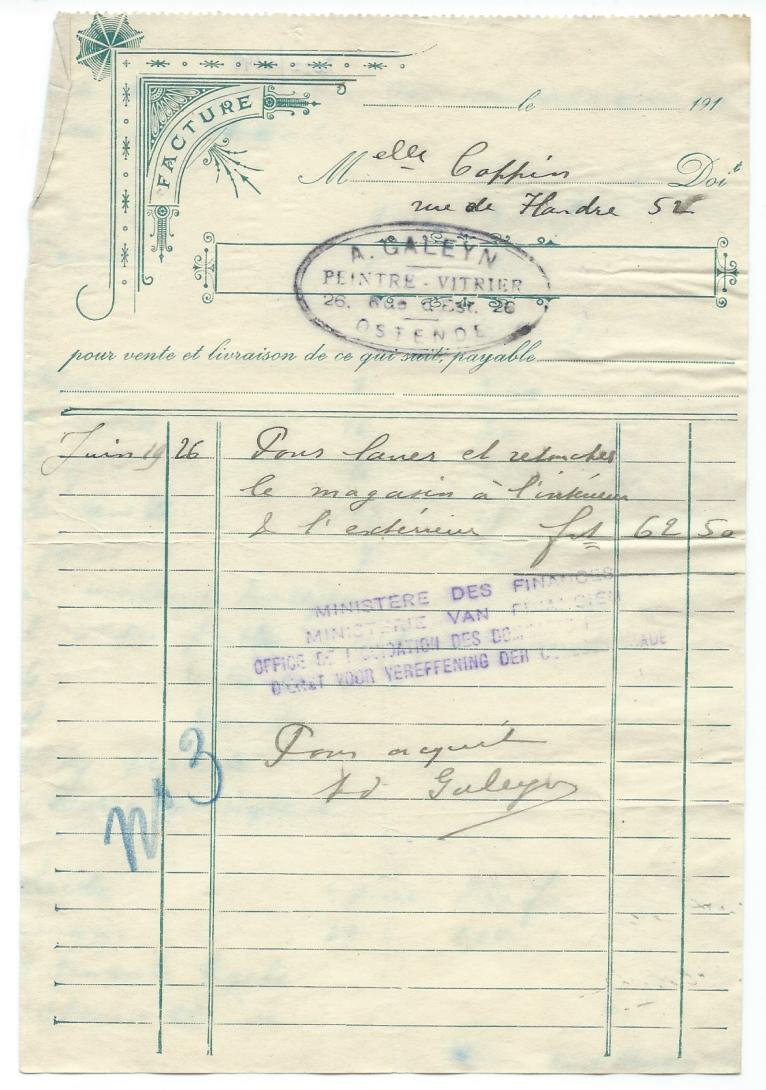 FACTURE
le 191
Melle Coppin Doit
rue de Flandre 52
A. GALEYN
PEINTRE - VITRIER
26. Rue 26
OSTENDE
pour vente et livraison de ce qui suit, payable
Juin 19 26 Pour laver et retoucher
le magasin à l'intérieur
& l'extérieur frs 62 50
MINISTERE DES FINANCES
MINISTERIE VAN FINANCIEN
OFFICE DE LIQUIDATION DES
DIENST VOOR VEREFFENING DER
Pour acquit
Ad Galeyn
No 3